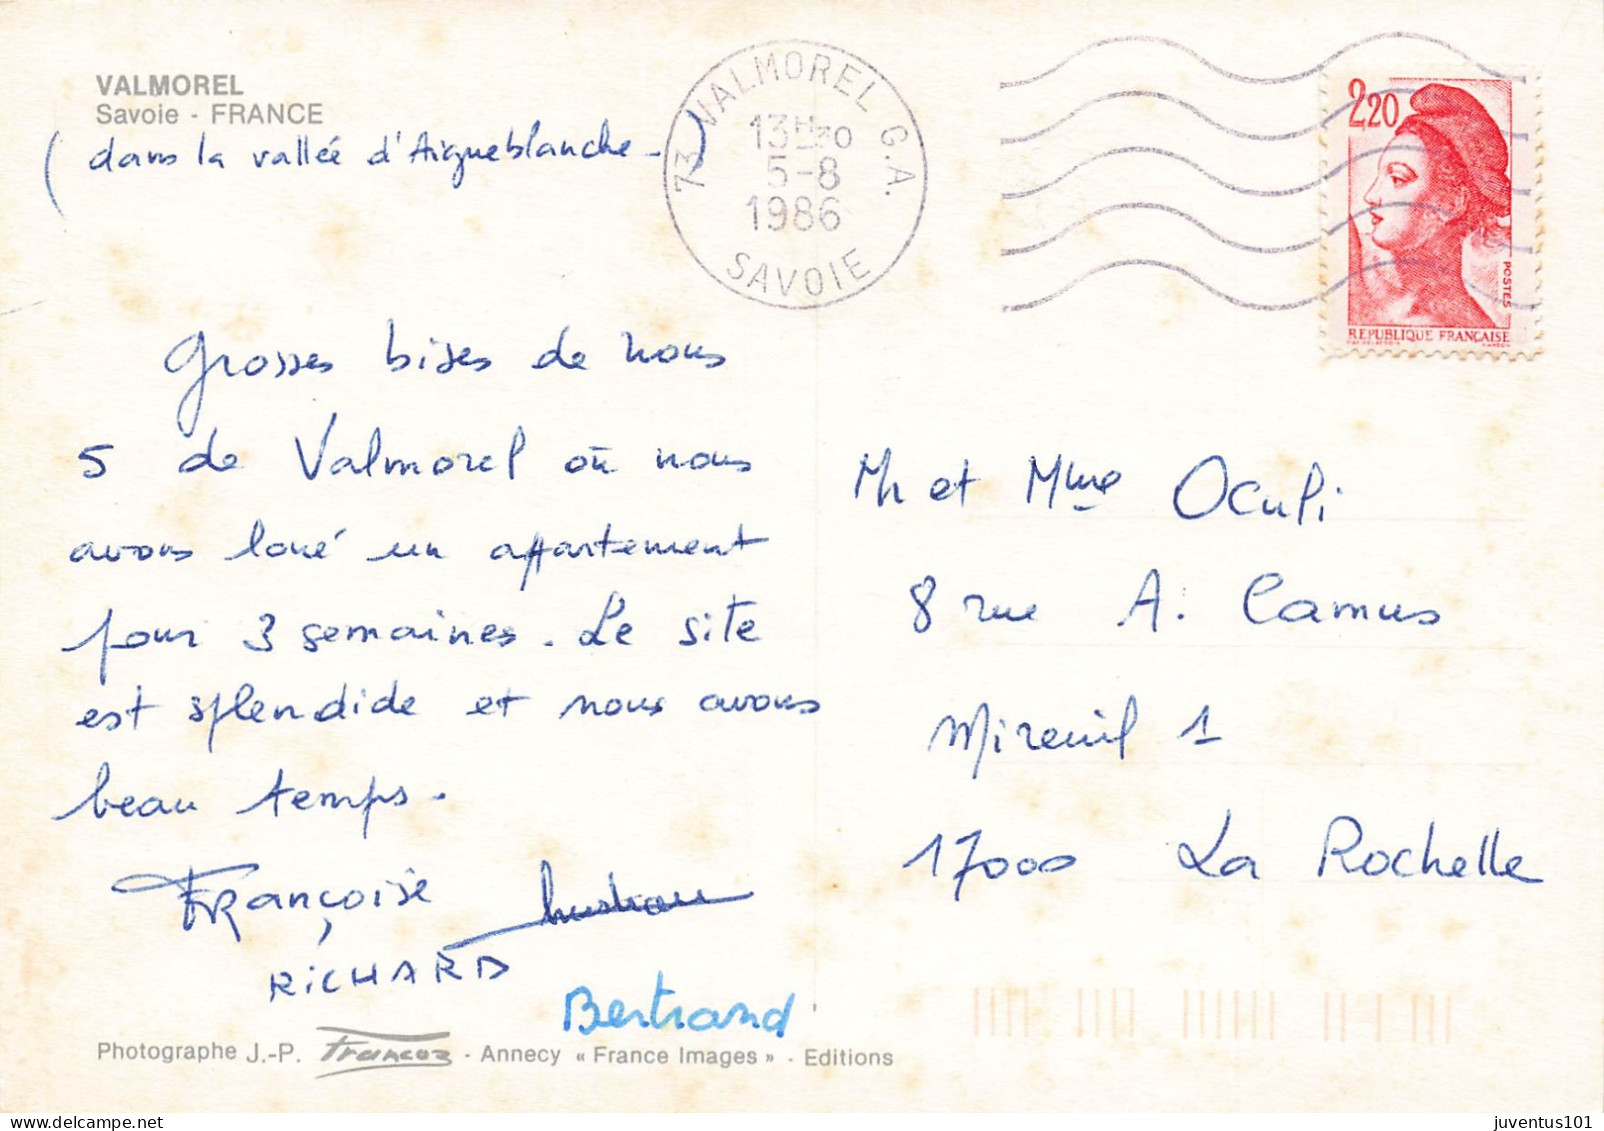 VALMOREL
Savoie - FRANCE
( dans la vallée d'Aigueblanche - )
73 VALMOREL G.A.
13H30
5-8
1986
SAVOIE
2,20
POSTES
REPUBLIQUE FRANÇAISE
Grosses bises de nous
5 de Valmorel où nous
avons loué un appartement
pour 3 semaines. Le site
est splendide et nous avons
beau temps.
Françoise
RiCHARD
Bertrand
Mr et Mme Oculi
8 rue A. Camus
Mireuil 1
17000 La Rochelle
Photographe J.-P. Francoz - Annecy « France Images » - Editions
juventus101